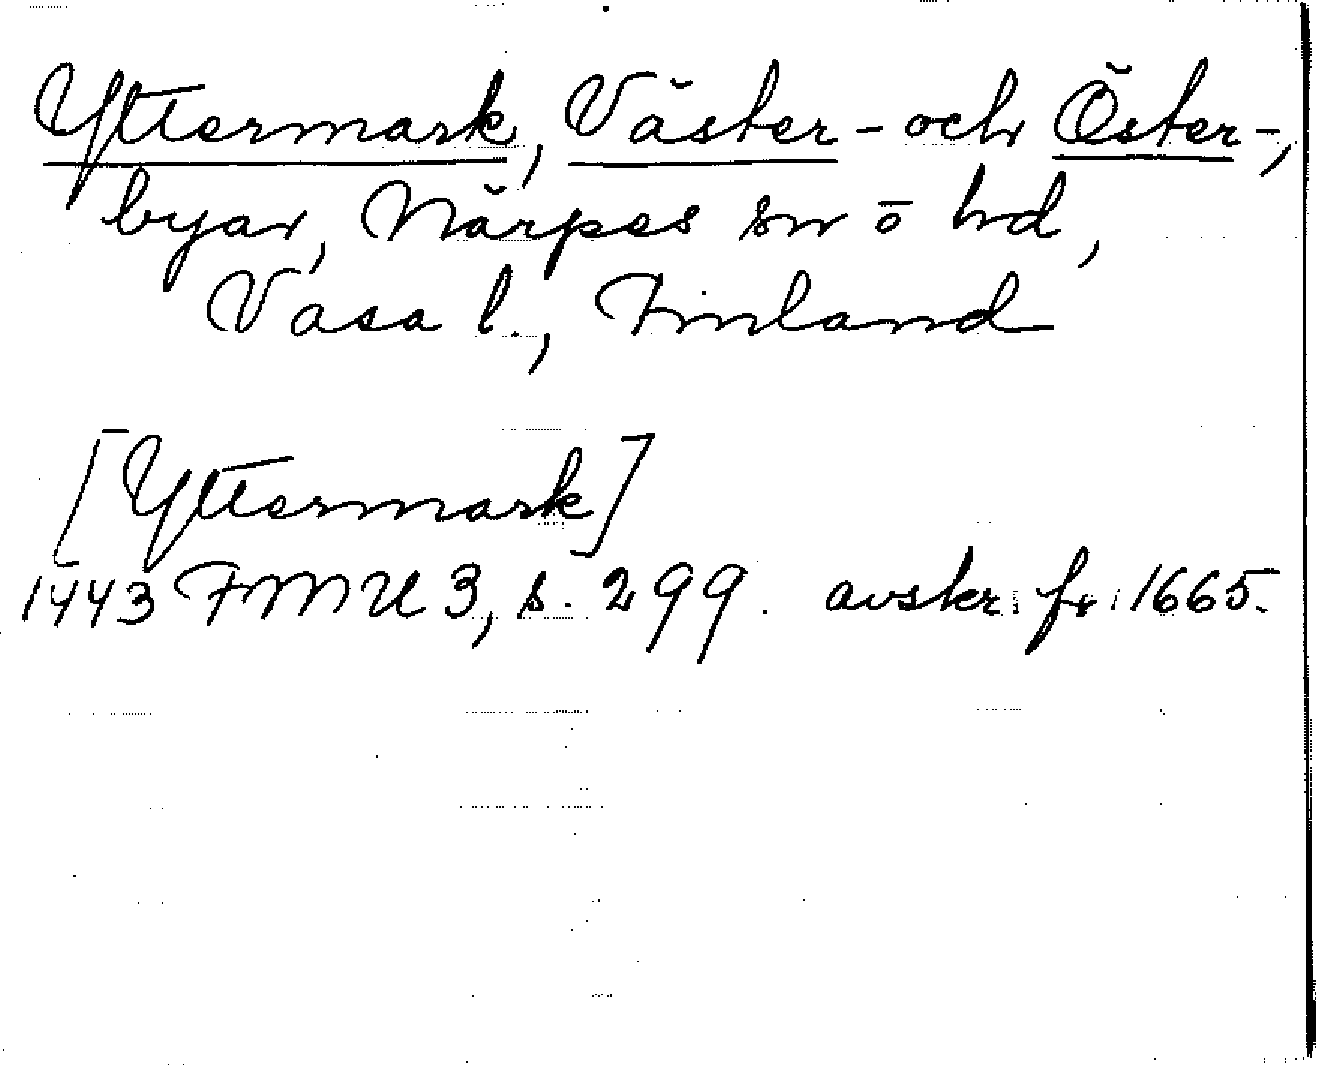 Yttermark, Väster- och Öster-,
byar, Närpes sn o hd,
Vasa l., Finland
[Yttermark]
1443 FMU 3, s. 299. avskr. fr. 1665.